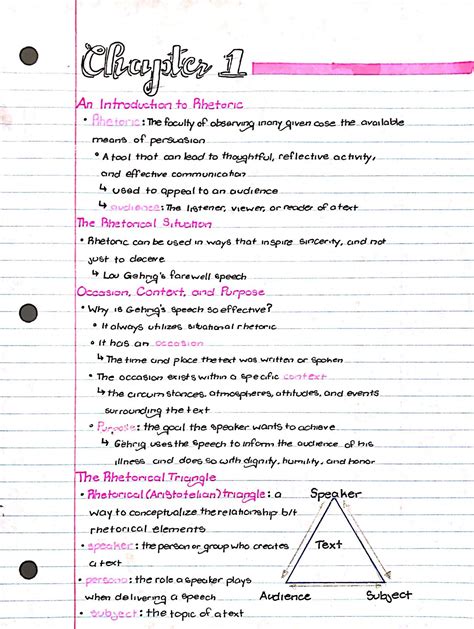 Chapter 1
An Introduction to Rhetoric
• Rhetoric: The faculty of observing in any given case the available
means of persuasion
• A tool that can lead to thoughtful, reflective activity,
and effective communication
↳ used to appeal to an audience
↳ audience: The listener, viewer, or reader of a text
The Rhetorical Situation
• Rhetoric can be used in ways that inspire sincerity, and not
just to deceive
↳ Lou Gehrig's farewell speech
Occasion, Context, and Purpose
• Why is Gehrig's speech so effective?
• It always utilizes situational rhetoric
• It has an occasion
↳ The time and place the text was written or spoken
• The occasion exists within a specific context
↳ the circumstances, atmospheres, attitudes, and events
surrounding the text
• Purpose: the goal the speaker wants to achieve
↳ Gehrig uses the speech to inform the audience of his
illness and does so with dignity, humility, and honor
The Rhetorical Triangle
• Rhetorical (Aristotelian) triangle: a
way to conceptualize the relationship b/t
rhetorical elements
• speaker: the person or group who creates
a text
• persona: the role a speaker plays
when delivering a speech
• subject: the topic of a text
Speaker
Text
Audience Subject